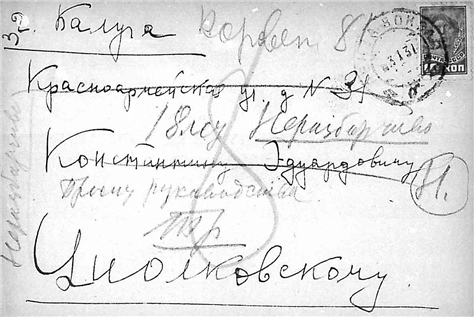 г. Калуга
Корвет 81
Красноармейская ул, д N 31
Неразборчиво
Константину Эдуардовичу
81.
Прошу руководства
Циолковскому.
Неразборчиво
КОП